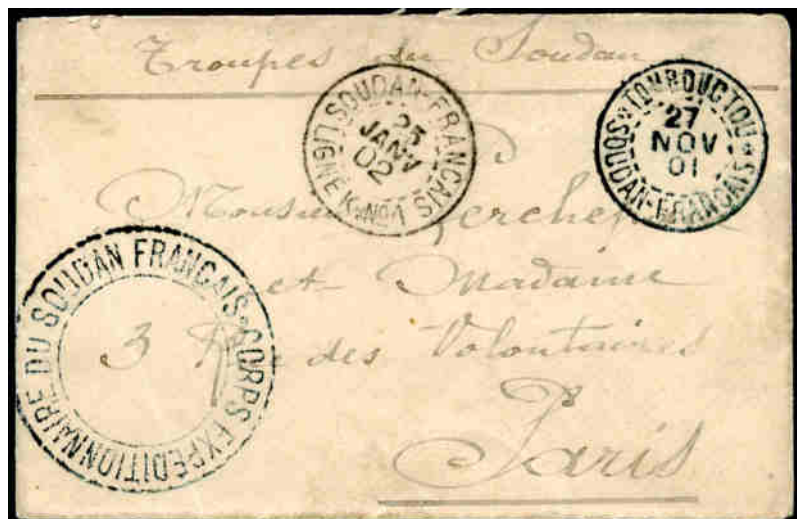 Troupes du Soudan
SOUDAN-FRANÇAIS
25
JANV
02
LIGNE K. No1
TOMBOUCTOU
27
NOV
01
SOUDAN-FRANÇAIS
Monsieur
et Madame
3 Rue des Volontaires
Paris
CORPS EXPÉDITIONNAIRE DU SOUDAN FRANÇAIS